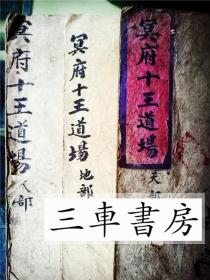 冥府十王道場天部
冥府十王道場地部
冥府十王道場人部
三車書房